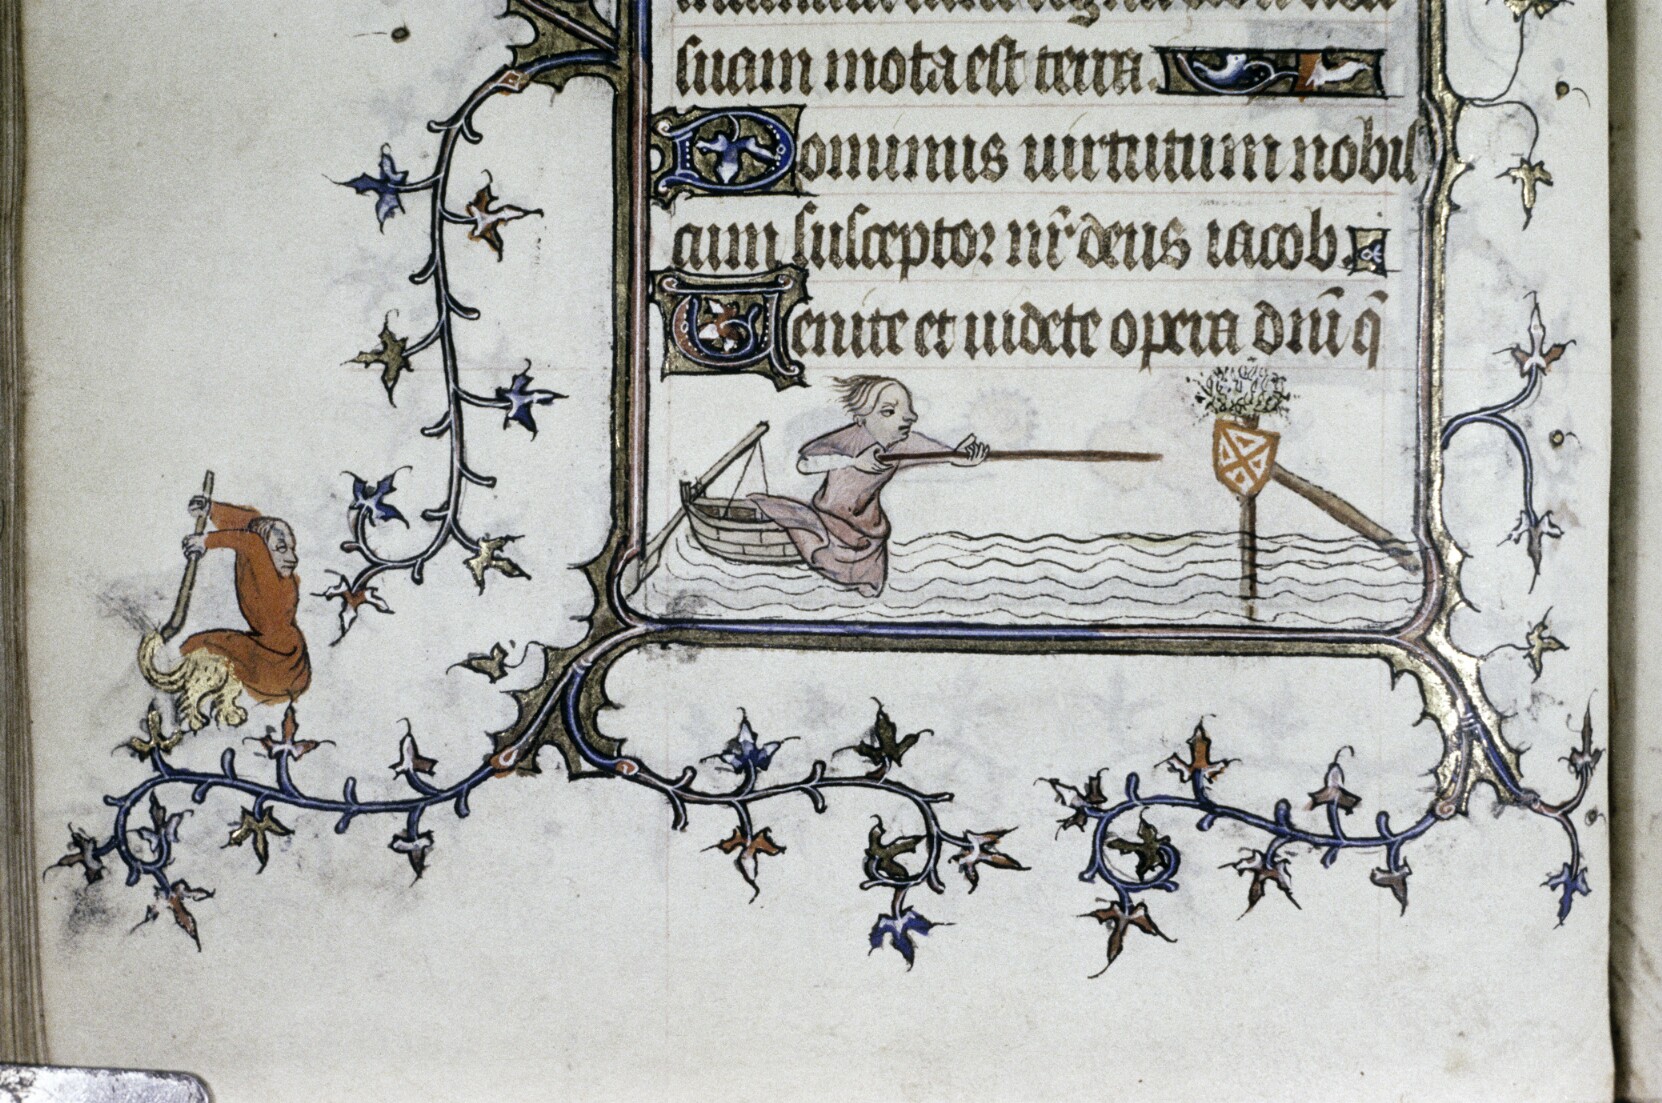 suam mota est terra.
Dominus uirtutum nobis
cum susceptor nr̄ deus iacob.
Uenite et uidete opera dn̄i q̄